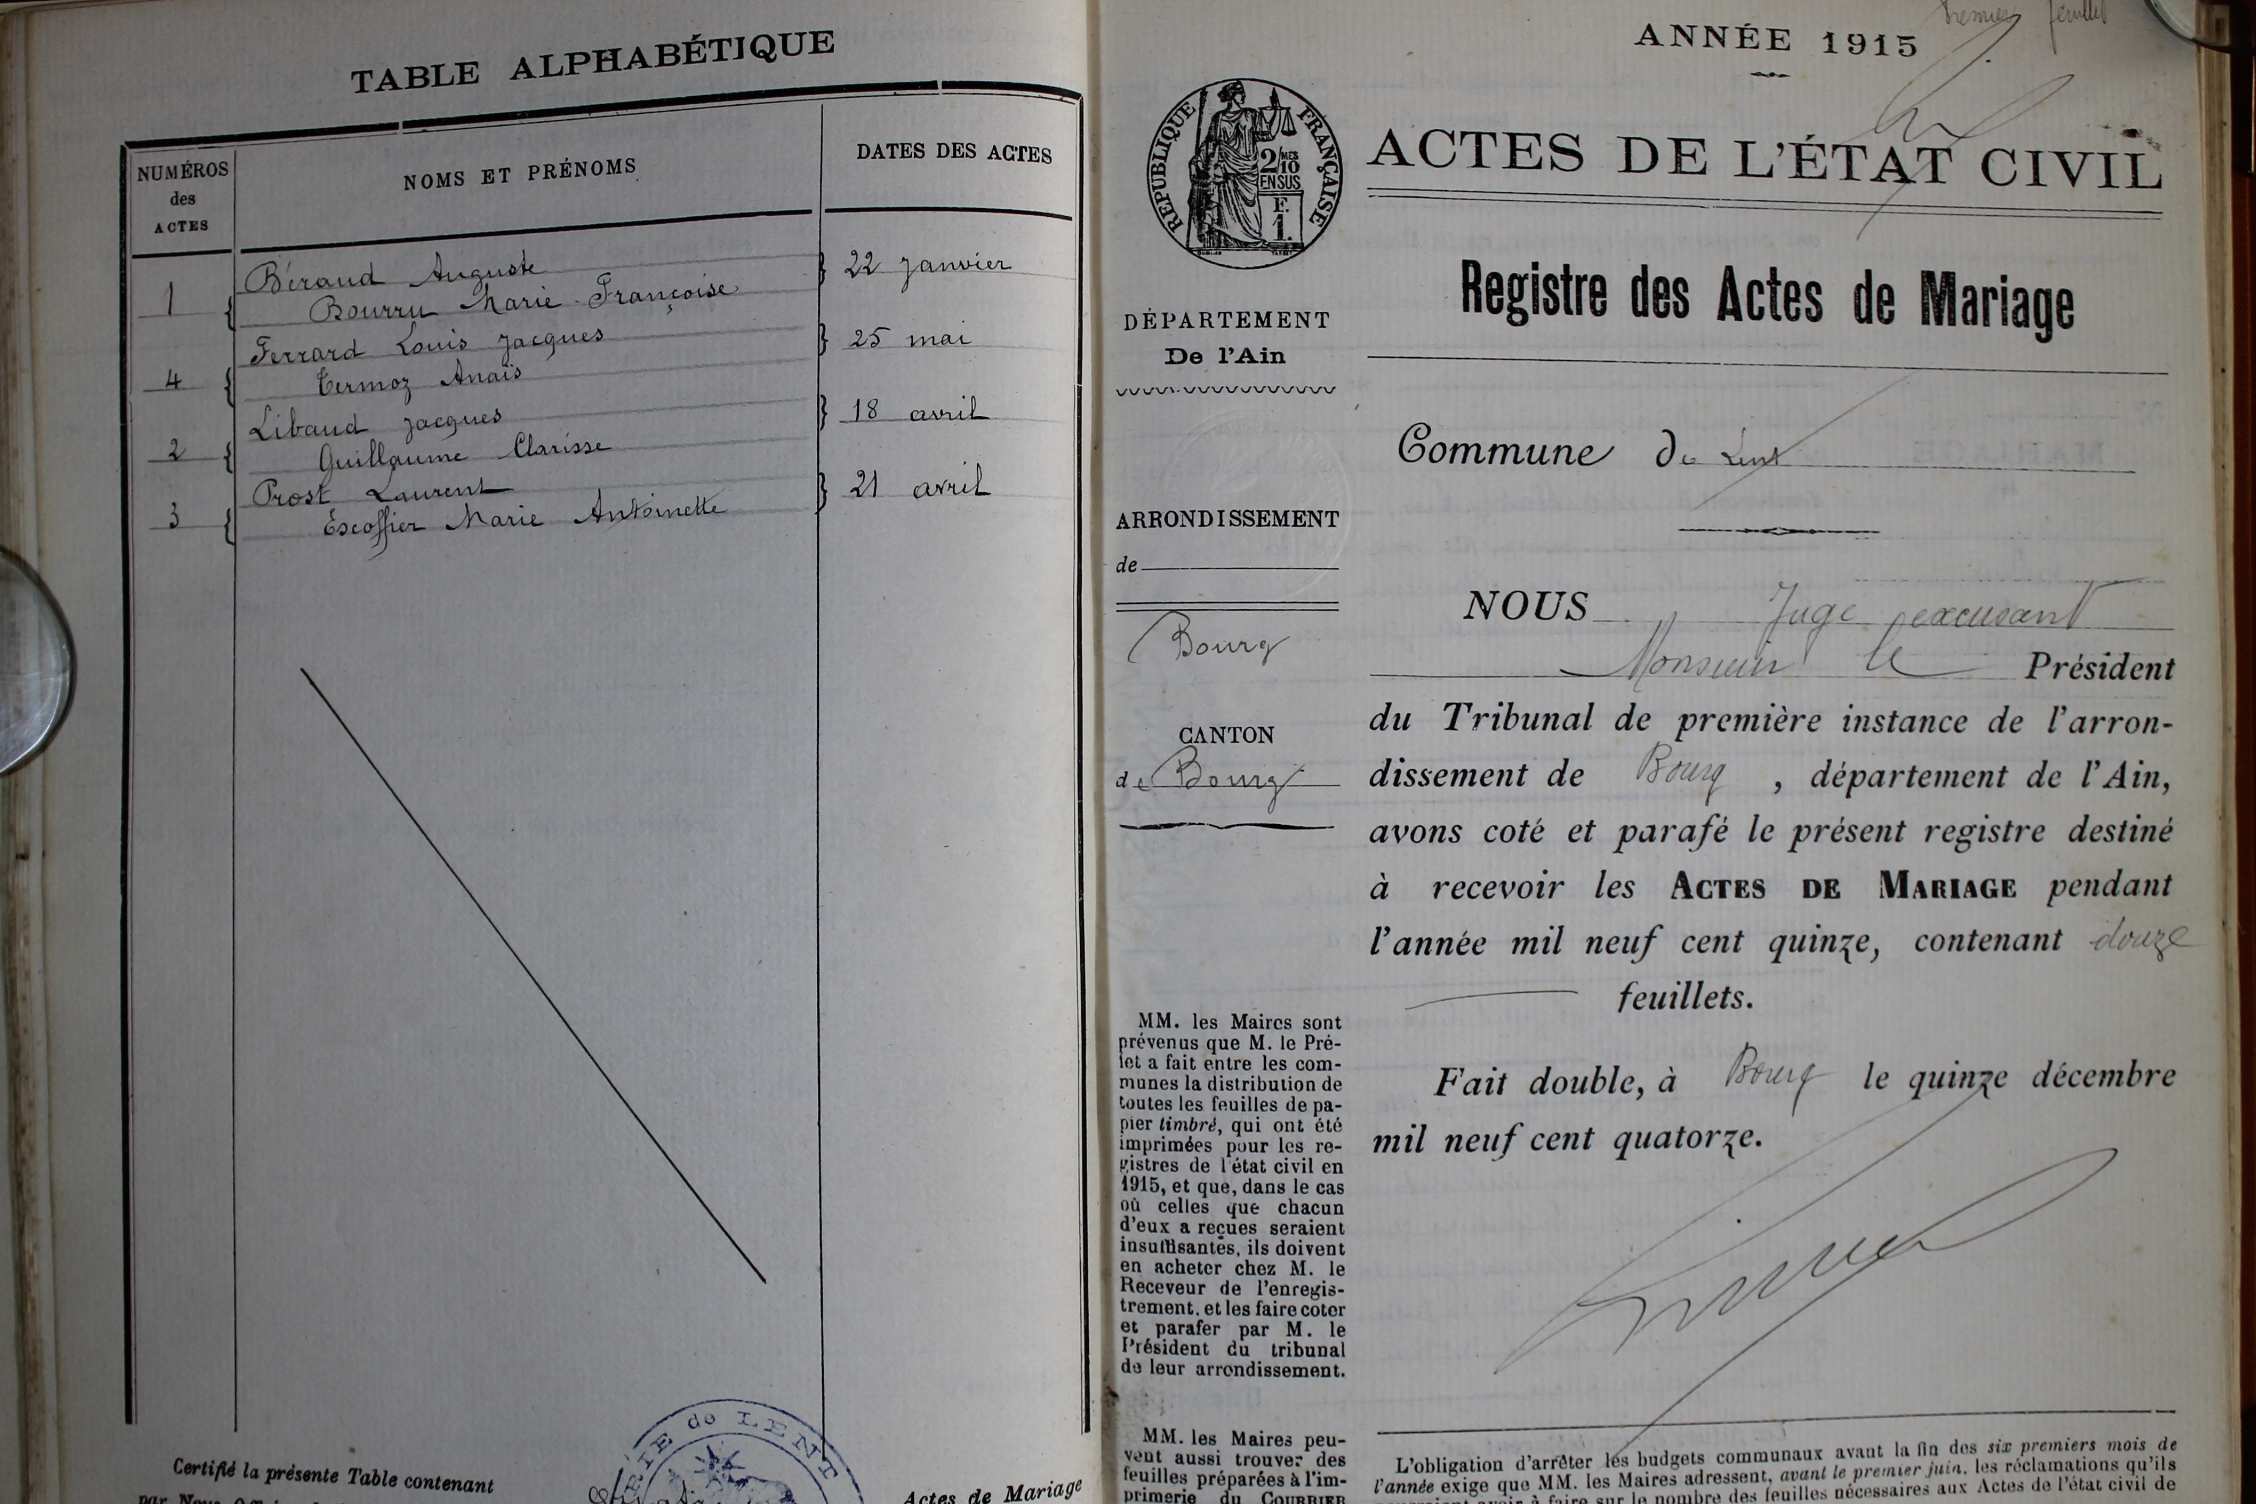 TABLE ALPHABÉTIQUE
NUMÉROS
des
ACTES
NOMS ET PRÉNOMS
DATES DES ACTES
1 { Béraud Auguste } 22 janvier
Bourru Marie Françoise
4 { Ferrard Louis Jacques } 25 mai
Termoz Anaïs
2 { Libaud Jacques } 18 avril
Guillaume Clarisse
3 { Prost Laurent } 21 avril
Escoffier Marie Antoinette
Certifié la présente Table contenant
Actes de Mariage
RIE de LENT
premier feuillet
ANNÉE 1915
RÉPUBLIQUE FRANÇAISE
2/10 MES
EN SUS
F.
1.
ACTES DE L'ÉTAT CIVIL
Registre des Actes de Mariage
DÉPARTEMENT
De l'Ain
Commune de Lent
ARRONDISSEMENT
de
Bourg
CANTON
de Bourg
MM. les Maires sont
prévenus que M. le Pré-
fet a fait entre les com-
munes la distribution de
toutes les feuilles de pa-
pier timbré, qui ont été
imprimées pour les re-
gistres de l'état civil en
1915, et que, dans le cas
où celles que chacun
d'eux a reçues seraient
insuffisantes, ils doivent
en acheter chez M. le
Receveur de l'enregis-
trement, et les faire coter
et parafer par M. le
Président du tribunal
de leur arrondissement.
MM. les Maires peu-
vent aussi trouver des
feuilles préparées à l'im-
primerie du COURRIER
NOUS Juge excusant
Monsieur le Président
du Tribunal de première instance de l'arron-
dissement de Bourg, département de l'Ain,
avons coté et parafé le présent registre destiné
à recevoir les ACTES DE MARIAGE pendant
l'année mil neuf cent quinze, contenant douze
feuillets.
Fait double, à Bourg le quinze décembre
mil neuf cent quatorze.
L'obligation d'arrêter les budgets communaux avant la fin des six premiers mois de
l'année exige que MM. les Maires adressent, avant le premier juin, les réclamations qu'ils
pourraient avoir à faire sur le nombre des feuilles nécessaires aux Actes de l'état civil de